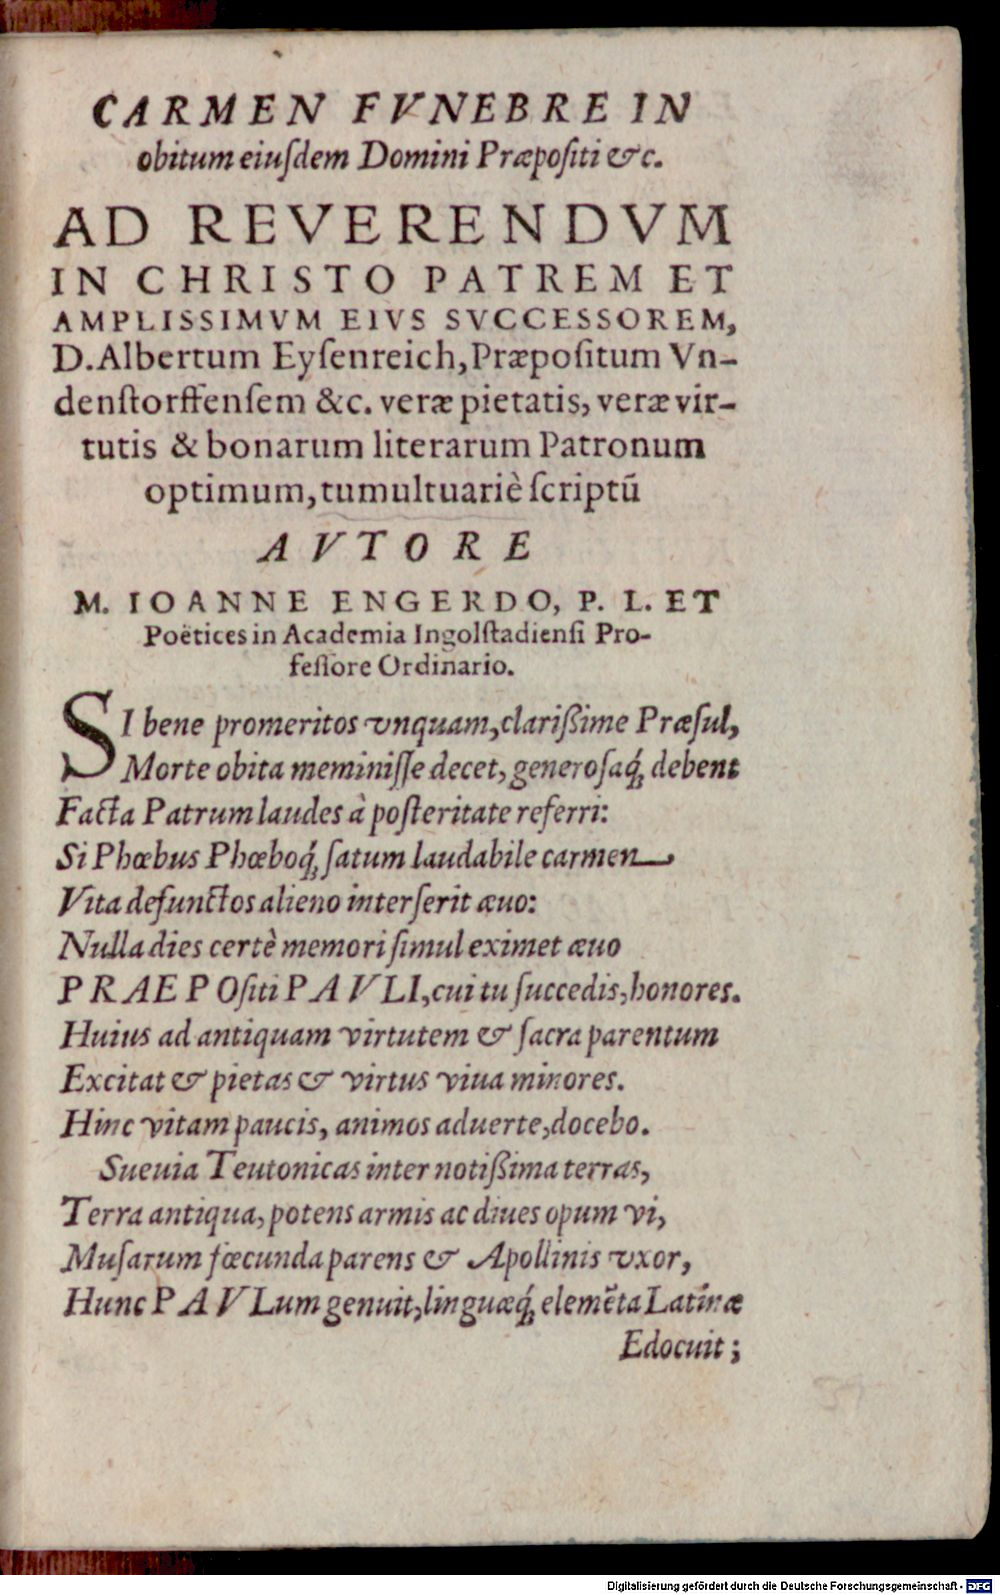 CARMEN FVNEBRE IN
obitum eiuſdem Domini Præpoſiti &c.
AD REVERENDVM
IN CHRISTO PATREM ET
AMPLISSIMVM EIVS SVCCESSOREM,
D. Albertum Eyſenreich, Præpoſitum Vn-
denſtorffenſem &c. veræ pietatis, veræ vir-
tutis & bonarum literarum Patronum
optimum, tumultuariè ſcriptū
AVTORE
M. IOANNE ENGERDO, P. L. ET
Poëtices in Academia Ingolſtadienſi Pro-
feſſore Ordinario.
SI bene promeritos vnquam, clarißime Præſul,
Morte obita meminiſſe decet, generoſaq́; debent
Facta Patrum laudes à poſteritate referri:
Si Phœbus Phœboq́; ſatum laudabile carmen
Vita defunctos alieno interſerit æuo:
Nulla dies certè memori ſimul eximet æuo
PRAEPOſiti PAVLI, cui tu ſuccedis, honores.
Huius ad antiquam virtutem & ſacra parentum
Excitat & pietas & virtus viua minores.
Hinc vitam paucis, animos aduerte, docebo.
Sueuia Teutonicas inter notißima terras,
Terra antiqua, potens armis ac diues opum vi,
Muſarum fœcunda parens & Apollinis vxor,
Hunc PAVLum genuit, linguæq́; elemēta Latinæ
Edocuit;
Digitalisierung gefördert durch die Deutsche Forschungsgemeinschaft - DFG